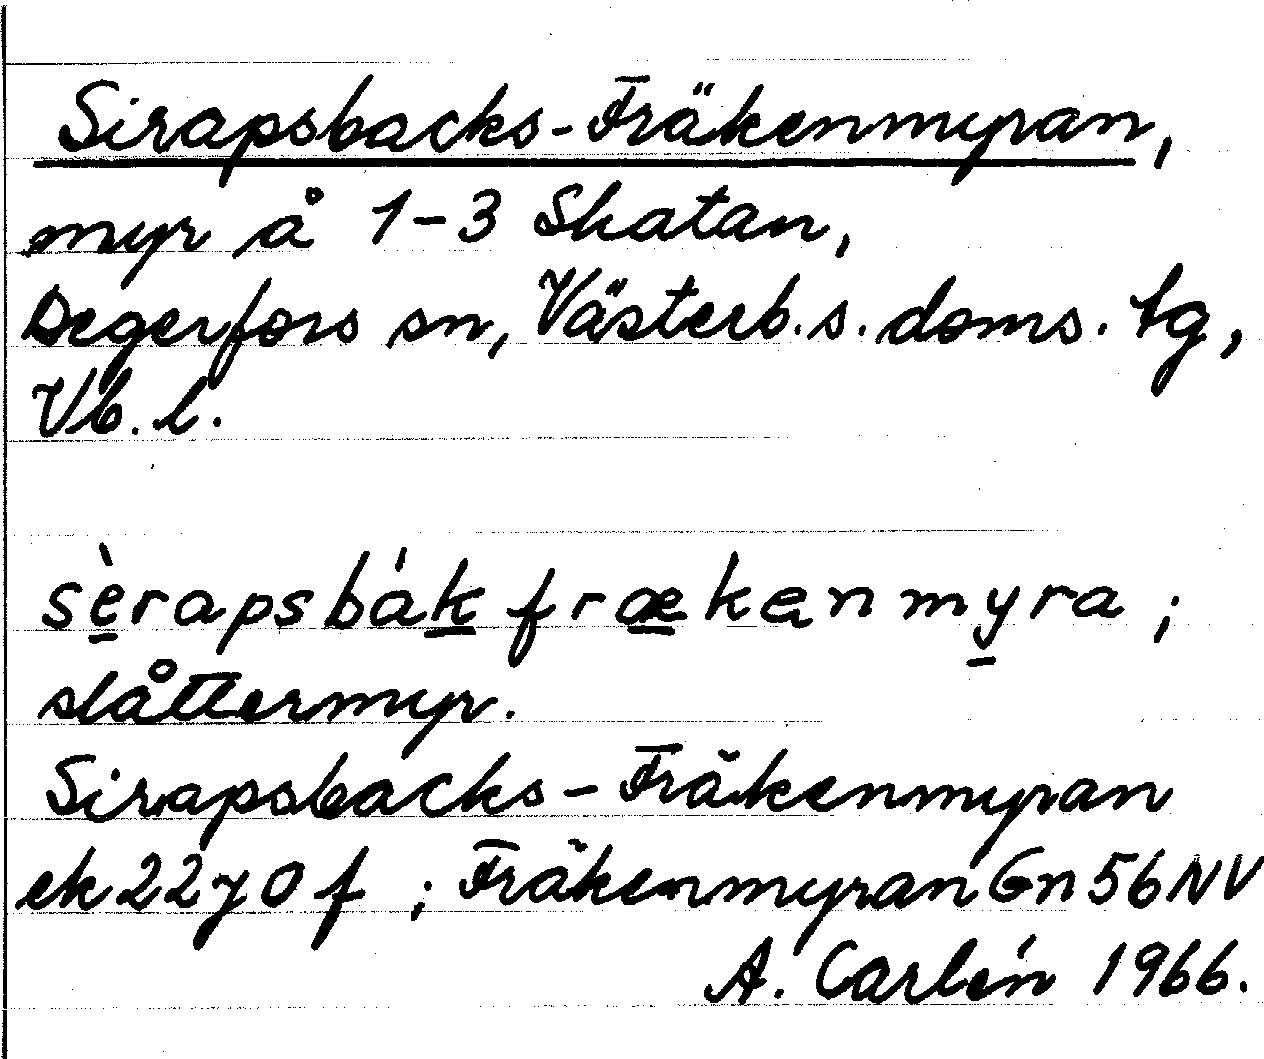 Sirapsbacks-Fräkenmyran,
myr å 1-3 Skatan,
Degerfors sn, Västerb. s. doms. tg,
Vb. l.
sèrapsbákfrækenmyra;
slåttermyr.
Sirapsbacks-Fräkenmyran
ek 22 y 0 f ; Fräkenmyran Gn 56 NV
A. Carlén 1966.